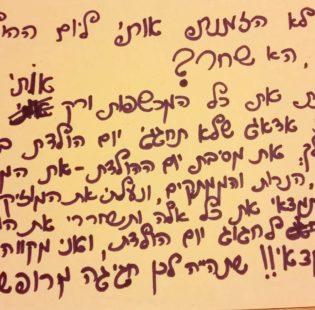 לא הזמנת אותי ליום ההו
, הא שחר?
אותי
ת את כל המכשפות ורק
אדאג שלא תחגגי יום הולדת
את מסיבת יום ההולדת - את המ
, הנרות והממתקים, ונעלתי את המוזיק
תמצאי את כל אלה ותשחררי את הו
לחגוג יום הולדת, ואני מקווה
!! שתהיה לכן חגיגה מרופש